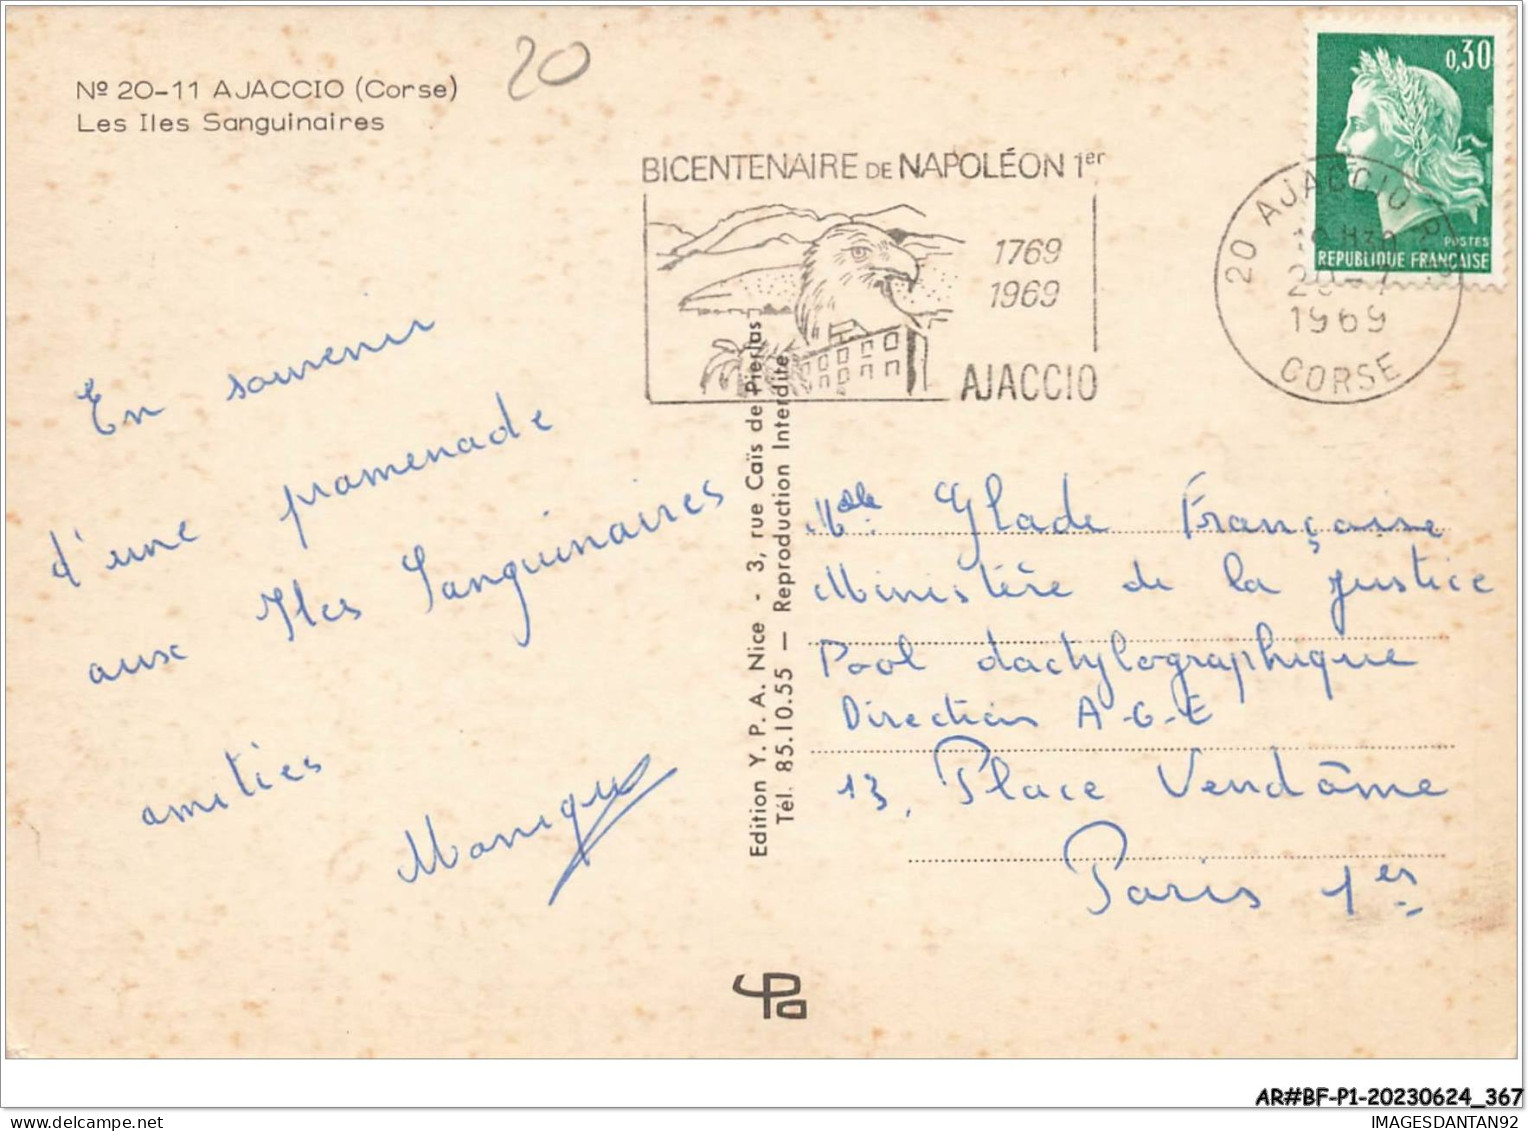 Nº 20-11 AJACCIO (Corse)
Les Iles Sanguinaires
20
BICENTENAIRE DE NAPOLÉON 1er
1769
1969
AJACCIO
0,30
POSTES
REPUBLIQUE FRANÇAISE
20 AJACCIO
1969
CORSE
En souvenir
d'une promenade
aux Iles Sanguinaires
amitiés
Monique
Edition Y. P. A. Nice - 3, rue Caïs de Pierlas
Tél. 85.10.55 — Reproduction Interdite
Mlle Glade Françoise
Ministère de la justice
Pool dactylographique
Direction A-G-E
13, Place Vendôme
Paris 1er
ypa
AR#BF-P1-20230624_367
IMAGESDANTAN92